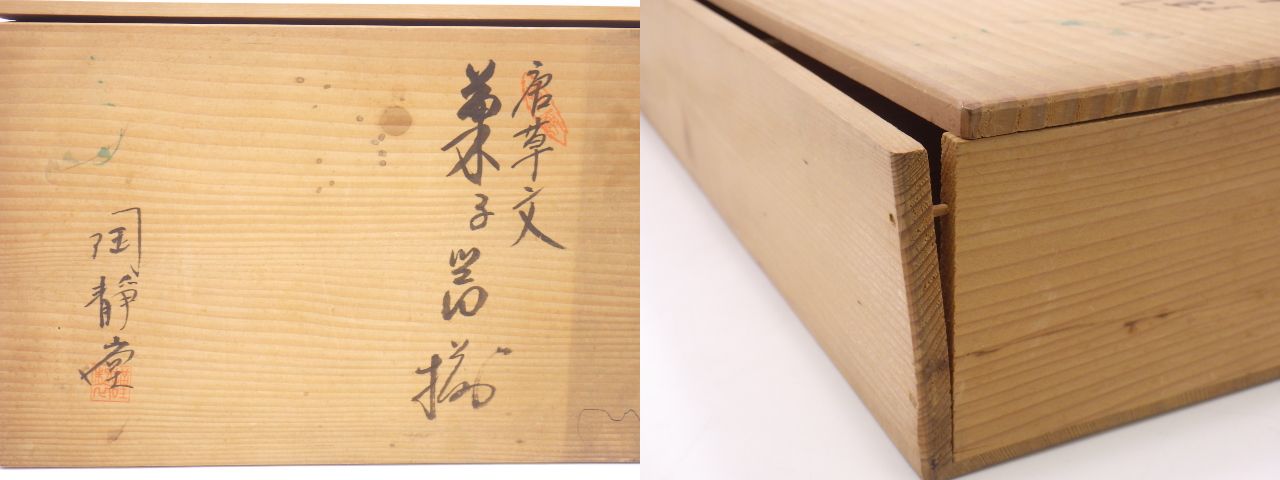 唐草文
菓子器揃
陶静堂